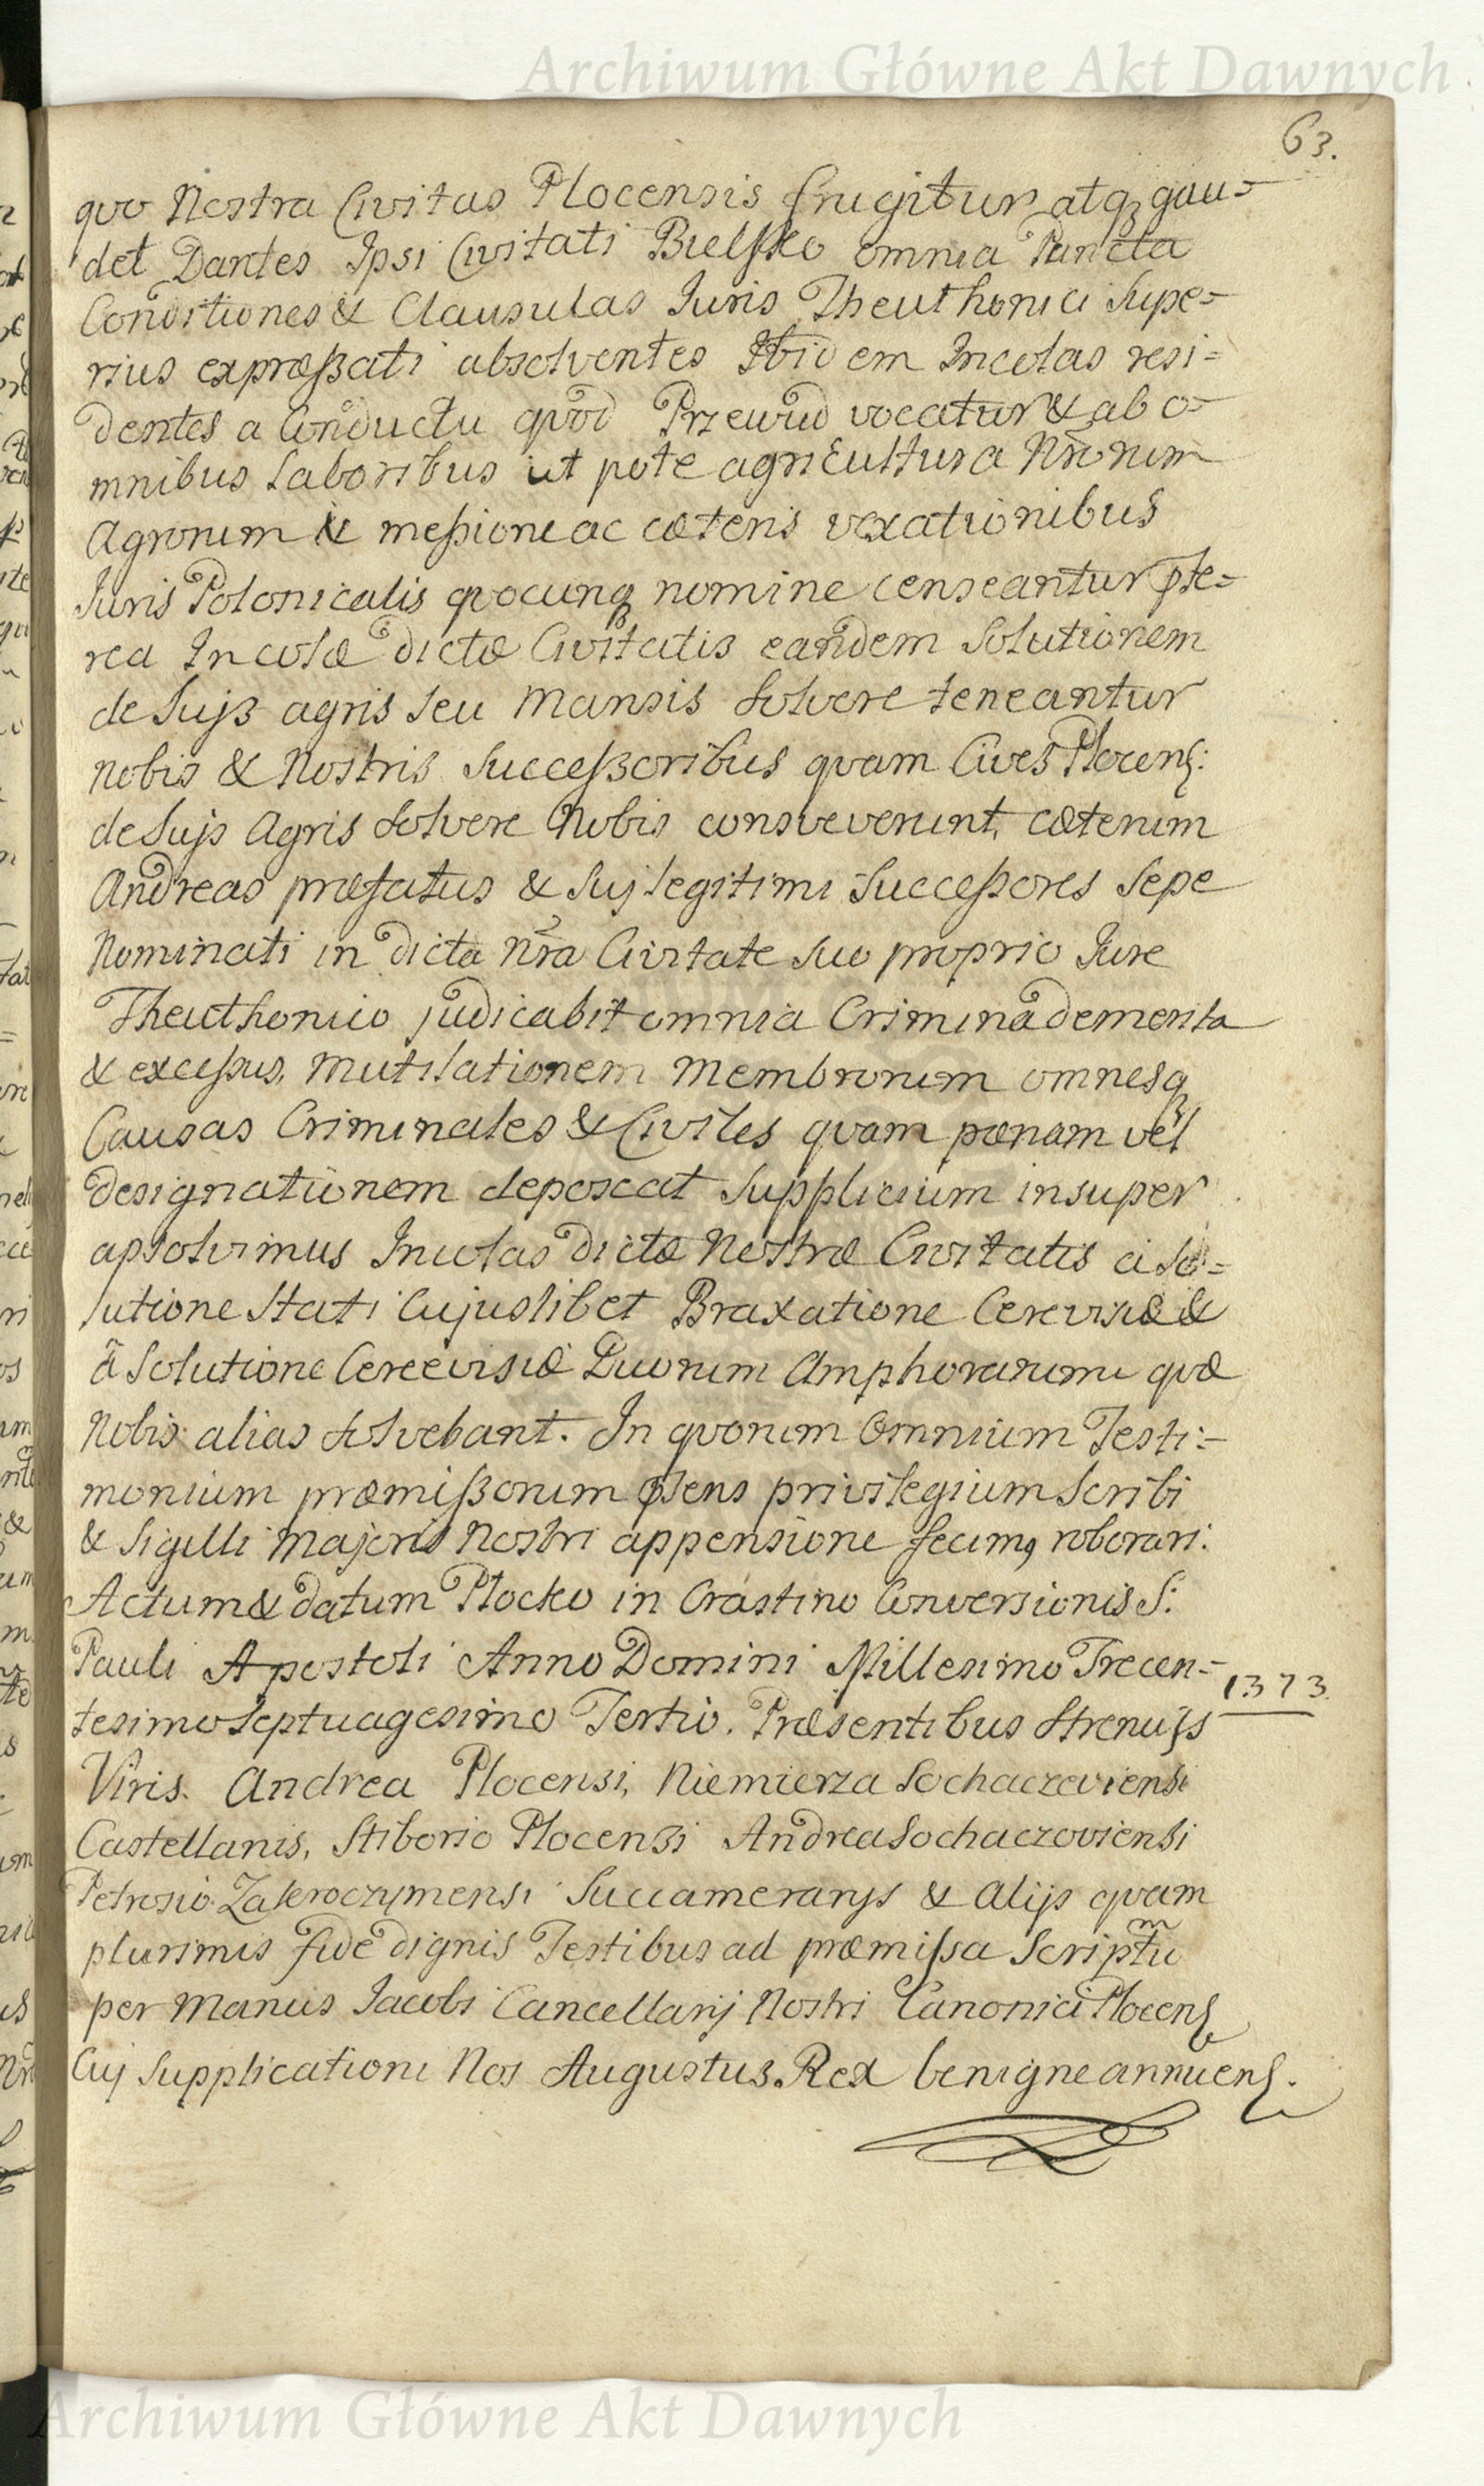 Archiwum Główne Akt Dawnych
63.
quo Nostra Civitas Plocensis frugitur atq gau=
det Dantes Ipsi Civitati Bielsko omnia Puncta
Conditiones & Clausulas Juris Theuthonici Supe=
rius expræßati absolventes Ibidem Incolas resi=
dentes a Conductu quod Przewud vocatur & ab o=
mnibus Laboribus ut pote agricultura Nrorum
Agrorum & meßione ac cæteris vexationibus
Juris Polonicalis quocunq nomine censeantur pte=
rea Incolæ dictæ Civitatis eandem Solutionem
de Suis agris seu Mansis Solvere teneantur
nobis & Nostris Succeßoribus quam Cives Plocens:
de Sujs Agris Solvere Nobis consveverunt, cæterum
Andreas præfatus & Suj legitimi Succeßores Sepe
Nominati in dicta Nra Civitate Suo proprio Jure
Theuthonico judicabit omnia Crimina demerita
& exceßus, Mutilationem Membrorum omnesq
Causas Criminales & Civiles quam pœnam vel
designationem deposcat Supplicium insuper
apsolvimus Incolas dictæ Nostræ Civitatis a So=
lutione Stati Cujuslibet Braxatione Cerevisiæ &
â Solutione Cereevisiæ Duorum Amphorarum quæ
Nobis alias Solvebant. In quorum Omnium Testi=
monium præmißorum ptens privilegium Scribi
& Sigilli Majoris Nostri appensione fecimq roborari.
Actum & datum Plocko in Crástino Conversionis S:
Pauli Apostoli Anno Domini Millesimo Trecen=
1373
tesimo Septuagesimo Tertio. Præsentibus Strenuis
Viris. Andrea Plocensi, Niemierza Sochaczeviensi
Castellanis, Stiborio Plocensi Andrea Sochaczoviensi
Petrosio Zakroczymensi Succamerarys & Alijs quam
plurimis fide dignis Testibus ad præmissa Scriptu m
per Manus Jacobi Cancellarij Nostri Canonici Plocens
Cuj Supplicationi Nos Augustus Rex benigne annuens.
Archiwum Główne Akt Dawnych